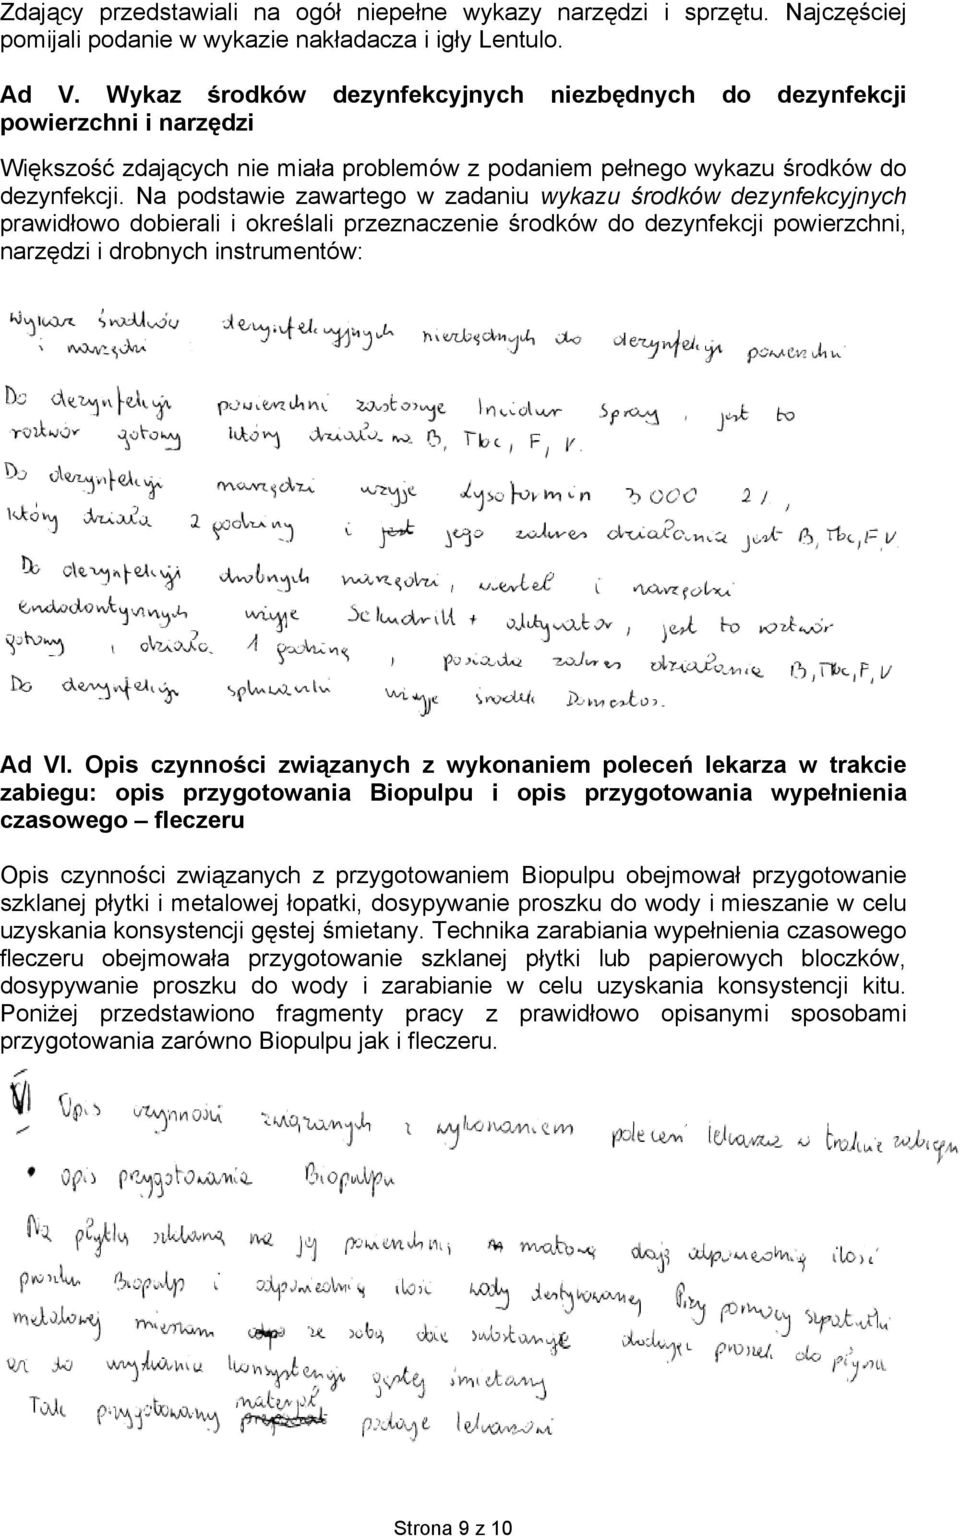 Zdający przedstawiali na ogół niepełne wykazy narzędzi i sprzętu. Najczęściej
pomijali podanie w wykazie nakładacza i igły Lentulo.
Ad V. Wykaz środków dezynfekcyjnych niezbędnych do dezynfekcji
powierzchni i narzędzi
Większość zdających nie miała problemów z podaniem pełnego wykazu środków do
dezynfekcji. Na podstawie zawartego w zadaniu wykazu środków dezynfekcyjnych
prawidłowo dobierali i określali przeznaczenie środków do dezynfekcji powierzchni,
narzędzi i drobnych instrumentów:
Wykaz środków dezynfekcyjnych niezbędnych do dezynfekcji powierzchni
i narzędzi
Do dezynfekcji powierzchni zastosuje Incidur Spray, jest to
roztwór gotowy który działa na B, Tbc, F, V.
Do dezynfekcji narzędzi użyje Lysoformin 3000 2%,
który działa 2 godziny i jest jego zakres działania jest B, Tbc, F, V.
Do dezynfekcji drobnych narzędzi, wierteł i narzędzi
endodontycznych użyje Sekudrill + aktywator, jest to roztwór
gotowy, działa 1 godzinę, posiada zakres działania B, Tbc, F, V
Do dezynfekcji spluwaczki użyje środek Domestos.
Ad VI. Opis czynności związanych z wykonaniem poleceń lekarza w trakcie
zabiegu: opis przygotowania Biopulpu i opis przygotowania wypełnienia
czasowego – fleczeru
Opis czynności związanych z przygotowaniem Biopulpu obejmował przygotowanie
szklanej płytki i metalowej łopatki, dosypywanie proszku do wody i mieszanie w celu
uzyskania konsystencji gęstej śmietany. Technika zarabiania wypełnienia czasowego
fleczeru obejmowała przygotowanie szklanej płytki lub papierowych bloczków,
dosypywanie proszku do wody i zarabianie w celu uzyskania konsystencji kitu.
Poniżej przedstawiono fragmenty pracy z prawidłowo opisanymi sposobami
przygotowania zarówno Biopulpu jak i fleczeru.
VI Opis czynności związanych z wykonaniem poleceń lekarza w trakcie zabiegu
• opis przygotowania Biopulpu
Na płytkę szklaną na jej powierzchnię matową daję odpowiednią ilość
proszku Biopulp i odpowiednią ilość wody destylowanej Przy pomocy szpatułki
metalowej mieszam ze sobą dwie substancje dodając proszek do płynu
aż do uzyskania konsystencji gęstej śmietany
Tak przygotowany materiał preparat podaje lekarzowi
Strona 9 z 10